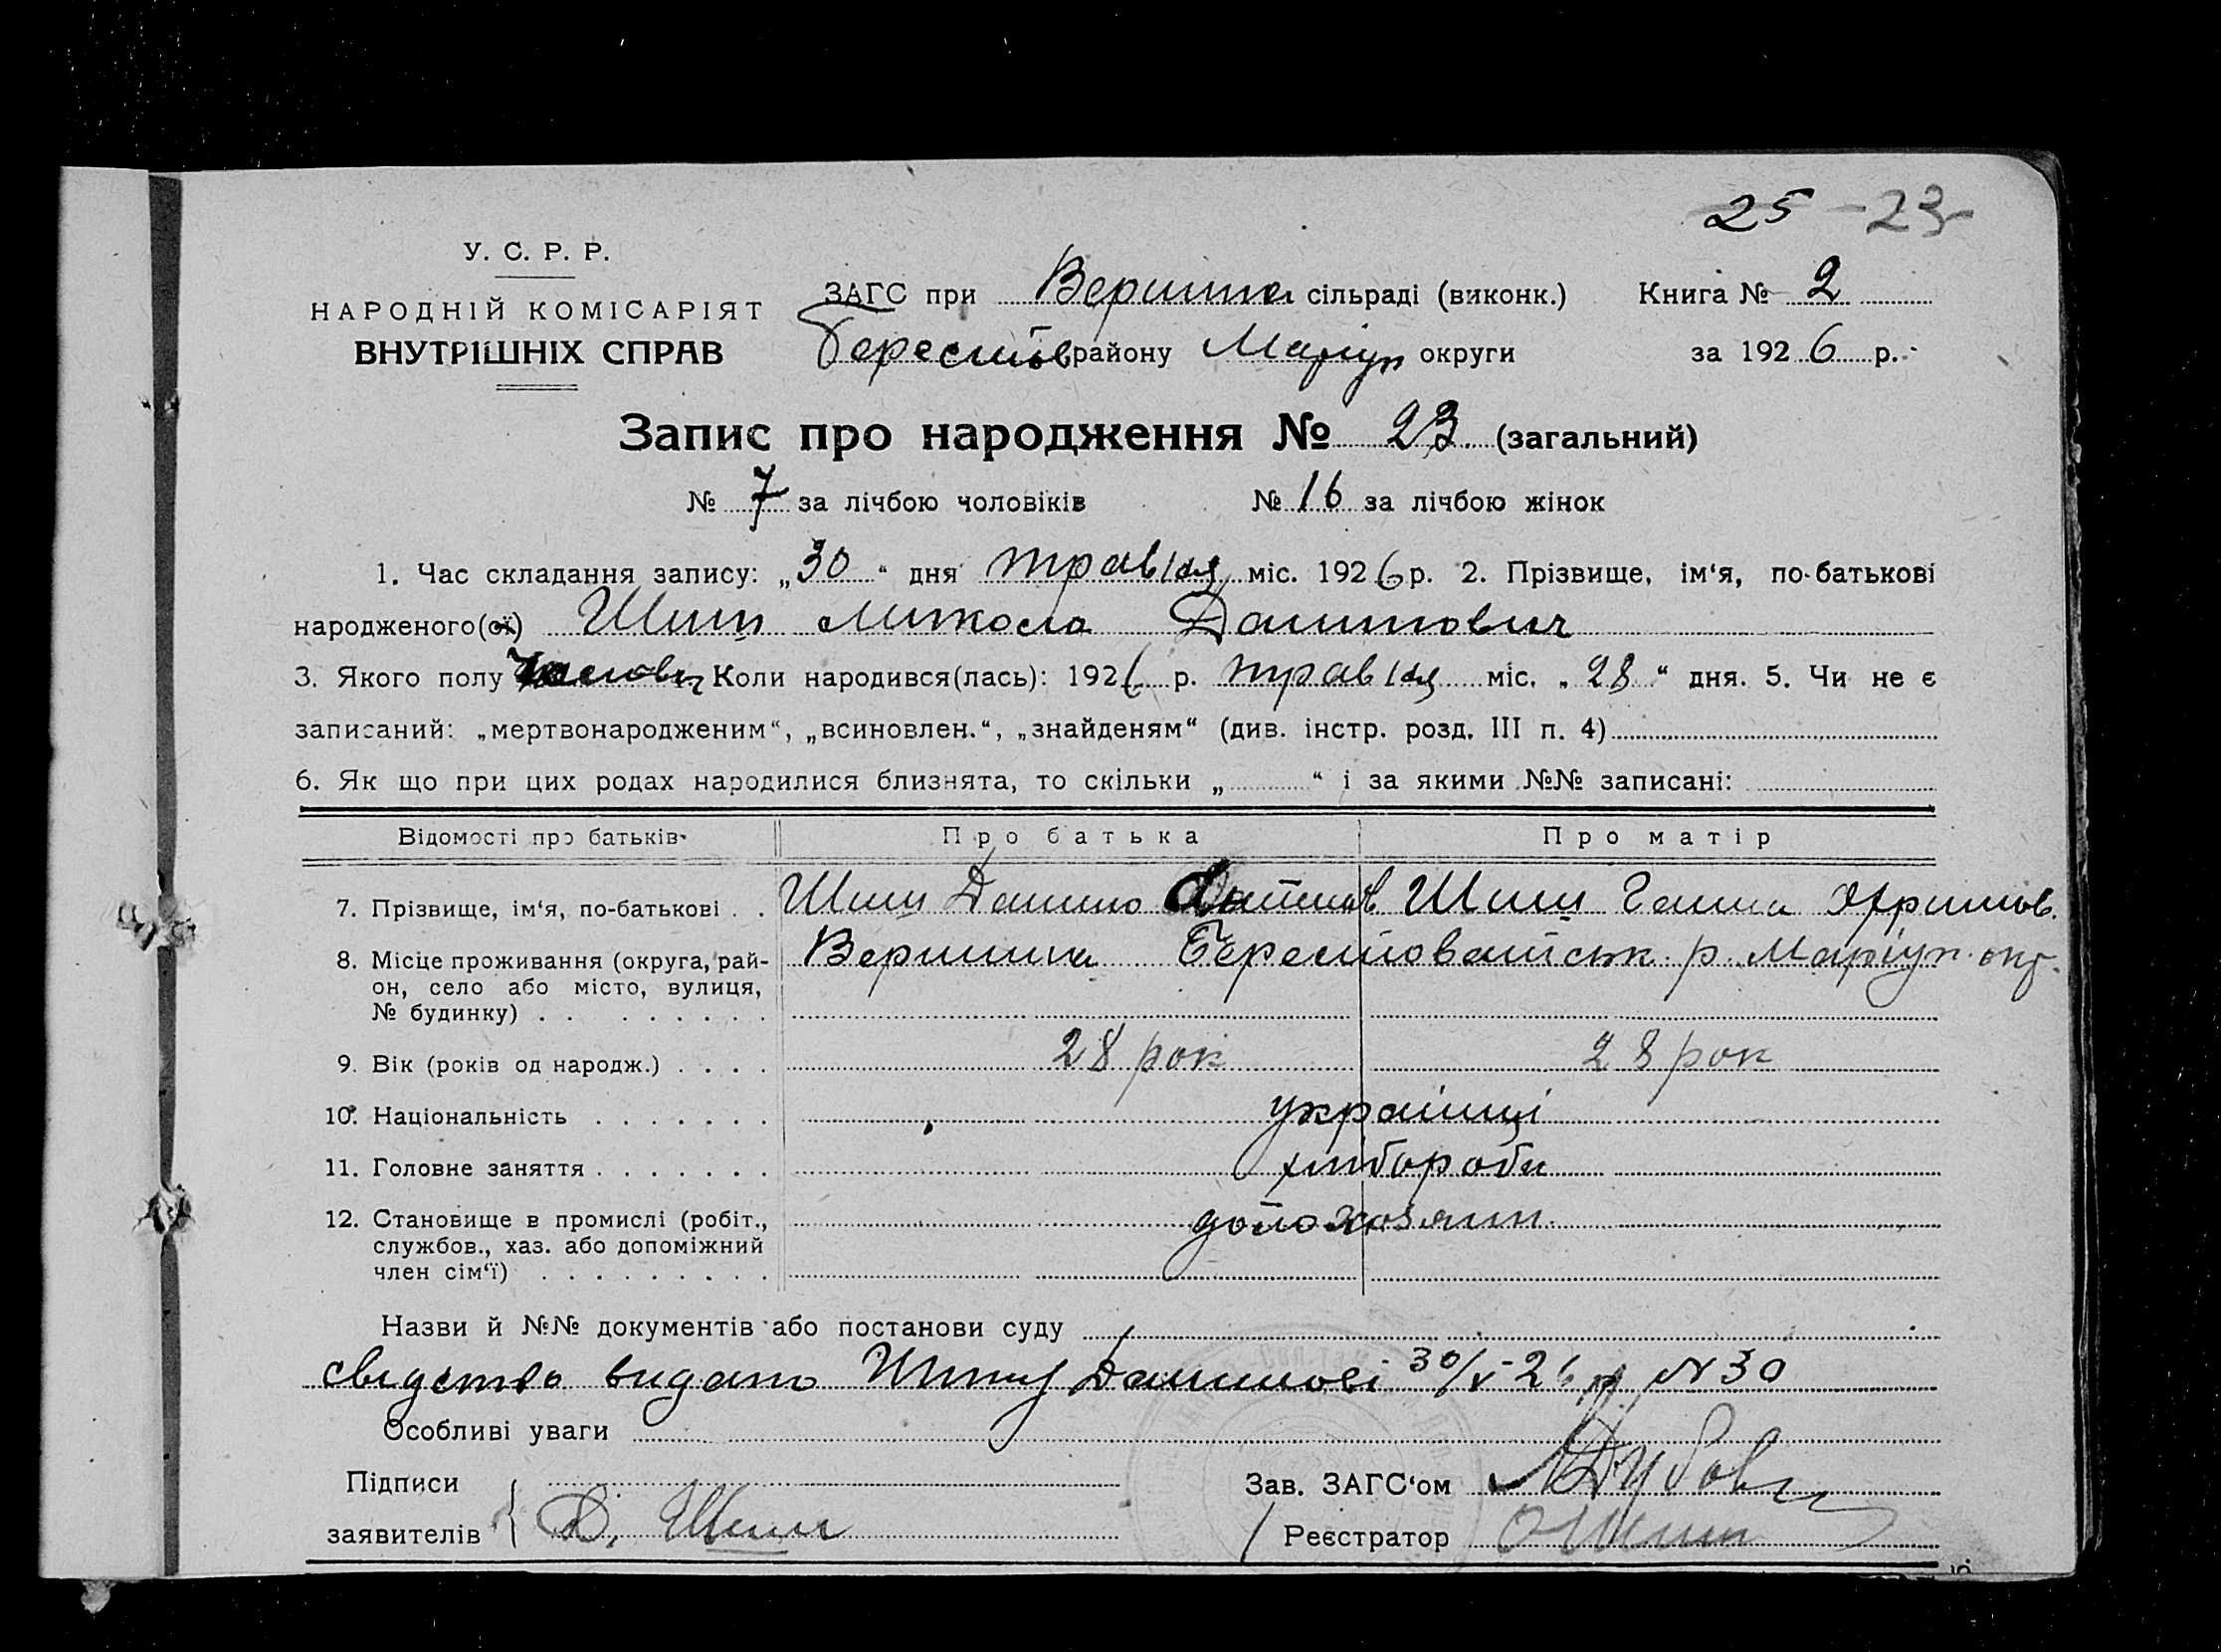 25 -23-
У. С. Р. Р.
НАРОДНІЙ КОМІСАРІЯТ
ВНУТРІШНІХ СПРАВ
ЗАГС при Вершина сільраді (виконк.) Книга № 2
Берестов району Маріуп округи за 1926 р.
Запис про народження № 23 (загальний)
№ 7 за лічбою чоловіків № 16 за лічбою жінок
1. Час складання запису: „30“ дня травня міс. 1926 р. 2. Прізвище, ім‘я, по-батькові
народженого(ої) Шиш Микола Данилович
3. Якого полу Чоловіч Коли народився(лась): 1926 р. травня міс. „28“ дня. 5. Чи не є
записаний: „мертвонародженим“, „всиновлен.“, „знайденям“ (див. інстр. розд. III п. 4)
6. Як що при цих родах народилися близнята, то скільки „ “ і за якими №№ записані:
Відомості про батьків Про батька Про матір
7. Прізвище, ім‘я, по-батькові . . Шиш Данило Шиш Ганна
8. Місце проживання (округа, рай-
он, село або місто, вулиця,
№ будинку) . . . . . . . . Вершина Берестоватськ. р. Маріуп. окр.
9. Вік (років од народж.) . . . . 28 рок 28 рок
10. Національність . . . . . . . українці
11. Головне заняття . . . . . . . хлібороби
12. Становище в промислі (робіт.,
службов., хаз. або допоміжний
член сім‘ї) . . . . . . . . .
Назви й №№ документів або постанови суду
свидетво видано Шишу Данилові 30/V-26 р N 30
Особливі уваги
Підписи Зав. ЗАГС‘ом
заявителів Д. Шиш Реєстратор